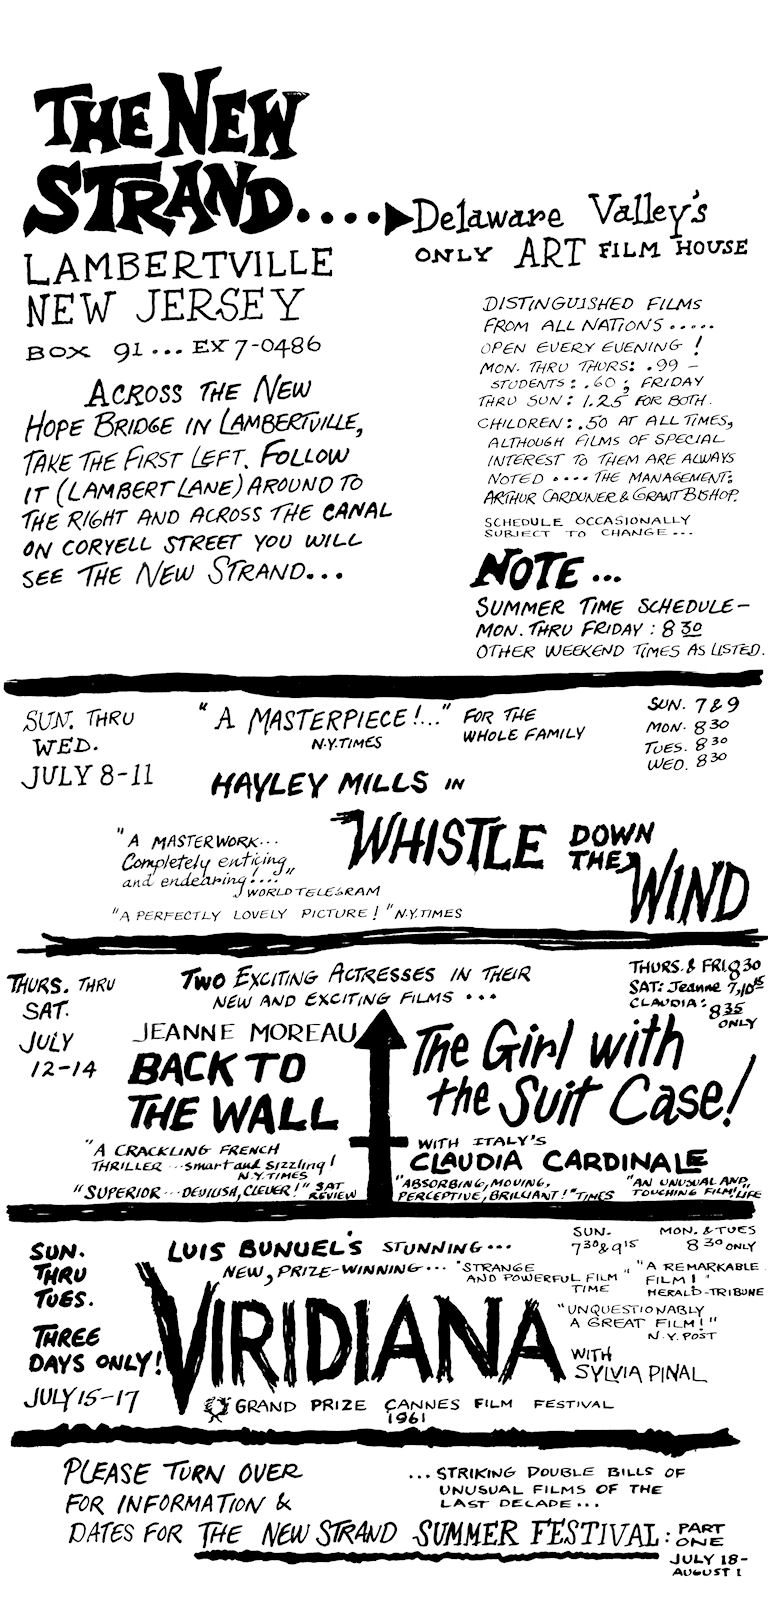 THE NEW
STRAND....
Delaware Valley's
ONLY ART FILM HOUSE
LAMBERTVILLE
NEW JERSEY
BOX 91... EX 7-0486
ACROSS THE NEW
HOPE BRIDGE IN LAMBERTVILLE,
TAKE THE FIRST LEFT. FOLLOW
IT (LAMBERT LANE) AROUND TO
THE RIGHT AND ACROSS THE CANAL
ON CORYELL STREET YOU WILL
SEE THE NEW STRAND...
DISTINGUISHED FILMS
FROM ALL NATIONS.....
OPEN EVERY EVENING!
MON. THRU THURS: .99 -
STUDENTS: .60; FRIDAY
THRU SUN: 1.25 FOR BOTH.
CHILDREN: .50 AT ALL TIMES,
ALTHOUGH FILMS OF SPECIAL
INTEREST TO THEM ARE ALWAYS
NOTED .... THE MANAGEMENT:
ARTHUR CARDUNER & GRANT BISHOP.
SCHEDULE OCCASIONALLY
SUBJECT TO CHANGE...
NOTE...
SUMMER TIME SCHEDULE—
MON. THRU FRIDAY: 8 30
OTHER WEEKEND TIMES AS LISTED.
SUN. THRU
WED.
JULY 8-11
"A MASTERPIECE!..."
N.Y.TIMES
FOR THE
WHOLE FAMILY
SUN. 7 & 9
MON. 8 30
TUES. 8 30
WED. 8 30
HAYLEY MILLS IN
WHISTLE DOWN
THE WIND
"A MASTERWORK...
Completely enticing
and endearing...."
WORLD TELEGRAM
"A PERFECTLY LOVELY PICTURE!" N.Y.TIMES
THURS. THRU
SAT.
JULY
12-14
TWO EXCITING ACTRESSES IN THEIR
NEW AND EXCITING FILMS ...
THURS. & FRI. 8 30
SAT: Jeanne 7, 10 15
CLAUDIA: 8 35
ONLY
JEANNE MOREAU
BACK TO
THE WALL
"A CRACKLING FRENCH
THRILLER ...smart and sizzling!
N.Y.TIMES
"SUPERIOR... DEVILISH, CLEVER!" SAT
REVIEW
The Girl with
the Suit Case!
WITH ITALY'S
CLAUDIA CARDINALE
"ABSORBING, MOVING,
PERCEPTIVE, BRILLIANT!" TIMES
"AN UNUSUAL AND
TOUCHING FILM!" LIFE
SUN.
THRU
TUES.
THREE
DAYS ONLY!
JULY 15-17
LUIS BUNUEL'S STUNNING...
NEW, PRIZE-WINNING...
SUN.
7 30 & 9 15
MON. & TUES
8 30 ONLY
"STRANGE
AND POWERFUL FILM"
TIME
"A REMARKABLE
FILM!"
HERALD-TRIBUNE
VIRIDIANA
"UNQUESTIONABLY
A GREAT FILM!"
N.Y. POST
WITH
SYLVIA PINAL
GRAND PRIZE CANNES FILM FESTIVAL
1961
PLEASE TURN OVER
FOR INFORMATION &
DATES FOR THE NEW STRAND SUMMER FESTIVAL: PART
ONE
JULY 18-
AUGUST 1
...STRIKING DOUBLE BILLS OF
UNUSUAL FILMS OF THE
LAST DECADE...